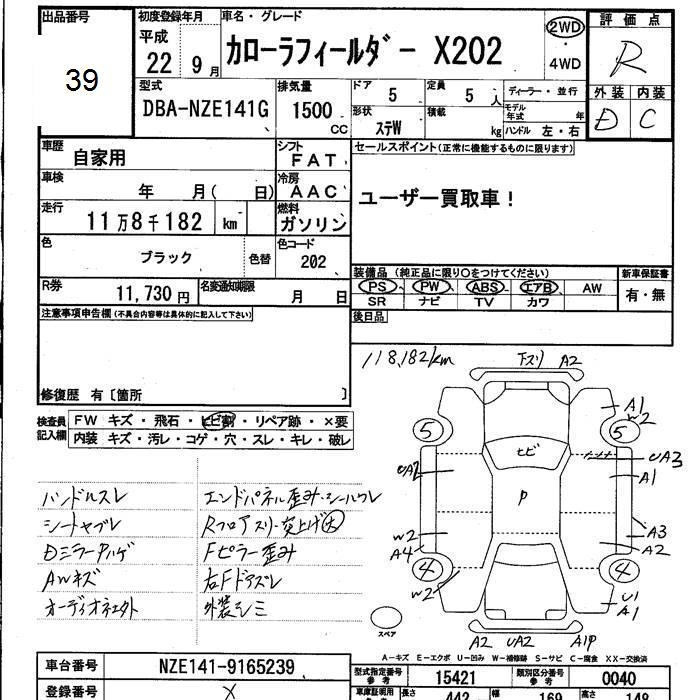 出品番号 初度登録年月 車名・グレード 評価点
39 平成 22年 9月 カローラフィールダー X202 2WD・4WD R
型式 排気量 ドア 定員 ディーラー・並行 外装 内装
DBA-NZE141G 1500 CC 5 5人 モデル年式 年 D C
形状 ステW 積載 kg ハンドル 左・右
車歴 自家用 シフト FAT セールスポイント(正常に機能するものに限ります)
車検 年 月( 日) 冷房 AAC ユーザー買取車!
走行 11万8千182 km 燃料 ガソリン
色 ブラック 色替 色コード 202
R券 11,730円 名変通知期限 月 日
装備品 (純正品に限り○をつけてください) 新車保証書
PS PW ABS エアB AW 有・無
SR ナビ TV カワ
後日品
注意事項申告欄(不具合内容等は具体的に記入して下さい)
修復歴 有〔箇所 〕
検査員記入欄 FW キズ・飛石・ヒビ割・リペア跡・×要
内装 キズ・汚レ・コゲ・穴・スレ・キレ・破レ
118,182/km
下スリ A2
A1
W2
5 5
ヒビ
UA2 UA3
A1
P
W2 A3
A4 A2
4 4
W2 U1
A1
スペア
A2 UA2 A1P
ハンドルスレ エンドパネル歪み・シールワレ
シートヤブレ Rフロアスリ・突上げ大
Dミラーハゲ Fピラー歪み
AWキズ 右Fドアズレ
オーディオ 外装シミ
A-キズ E-エクボ U-凹み W-補修跡 S-サビ C-腐食 XX-交換済
車台番号 NZE141-9165239 型式指定番号 参考 15421 類別区分番号 参考 0040
登録番号 X 長さ 442 幅 169 高さ 148